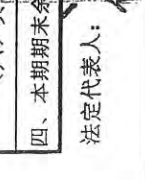 四、本期期末余
法定代表人：